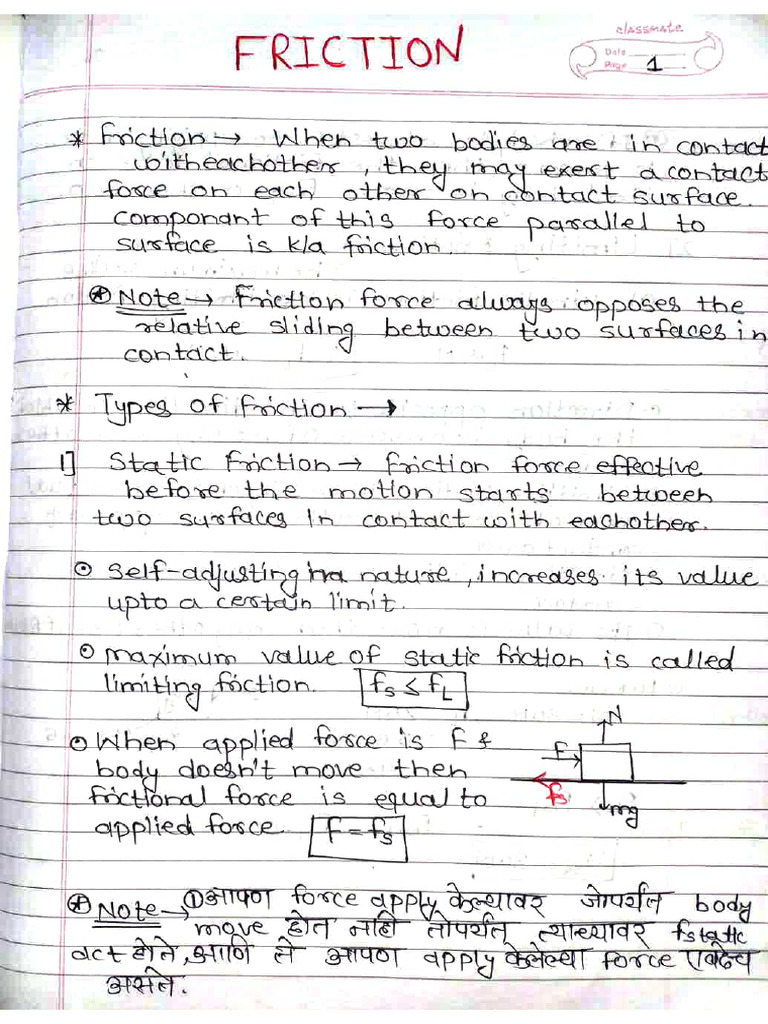 FRICTION
classmate
Date
Page 1
* Friction → When two bodies are in contact
witheachother, they may exert a contact
force on each other on contact surface.
componant of this force parallel to
surface is k/a friction.
⊛ Note → Friction force always opposes the
relative sliding between two surfaces in
contact.
* Types of friction →
1] Static Friction → friction force effective
before the motion starts between
two surfaces in contact with eachother.
⊙ Self-adjusting in nature, increases its value
upto a certain limit.
⊙ maximum value of static friction is called
limiting friction. fs ≤ fL
⊙ When applied force is F &
body doesn't move then
frictional force is equal to
applied force. F = fs
N
F
fs
mg
⊛ Note → ① आपण force apply केल्यावर जोपर्यंत body
move होत नाही तोपर्यंत त्याच्यावर fstatic
act होते, आणि ते आपण apply केलेल्या force एवढेच
असते.